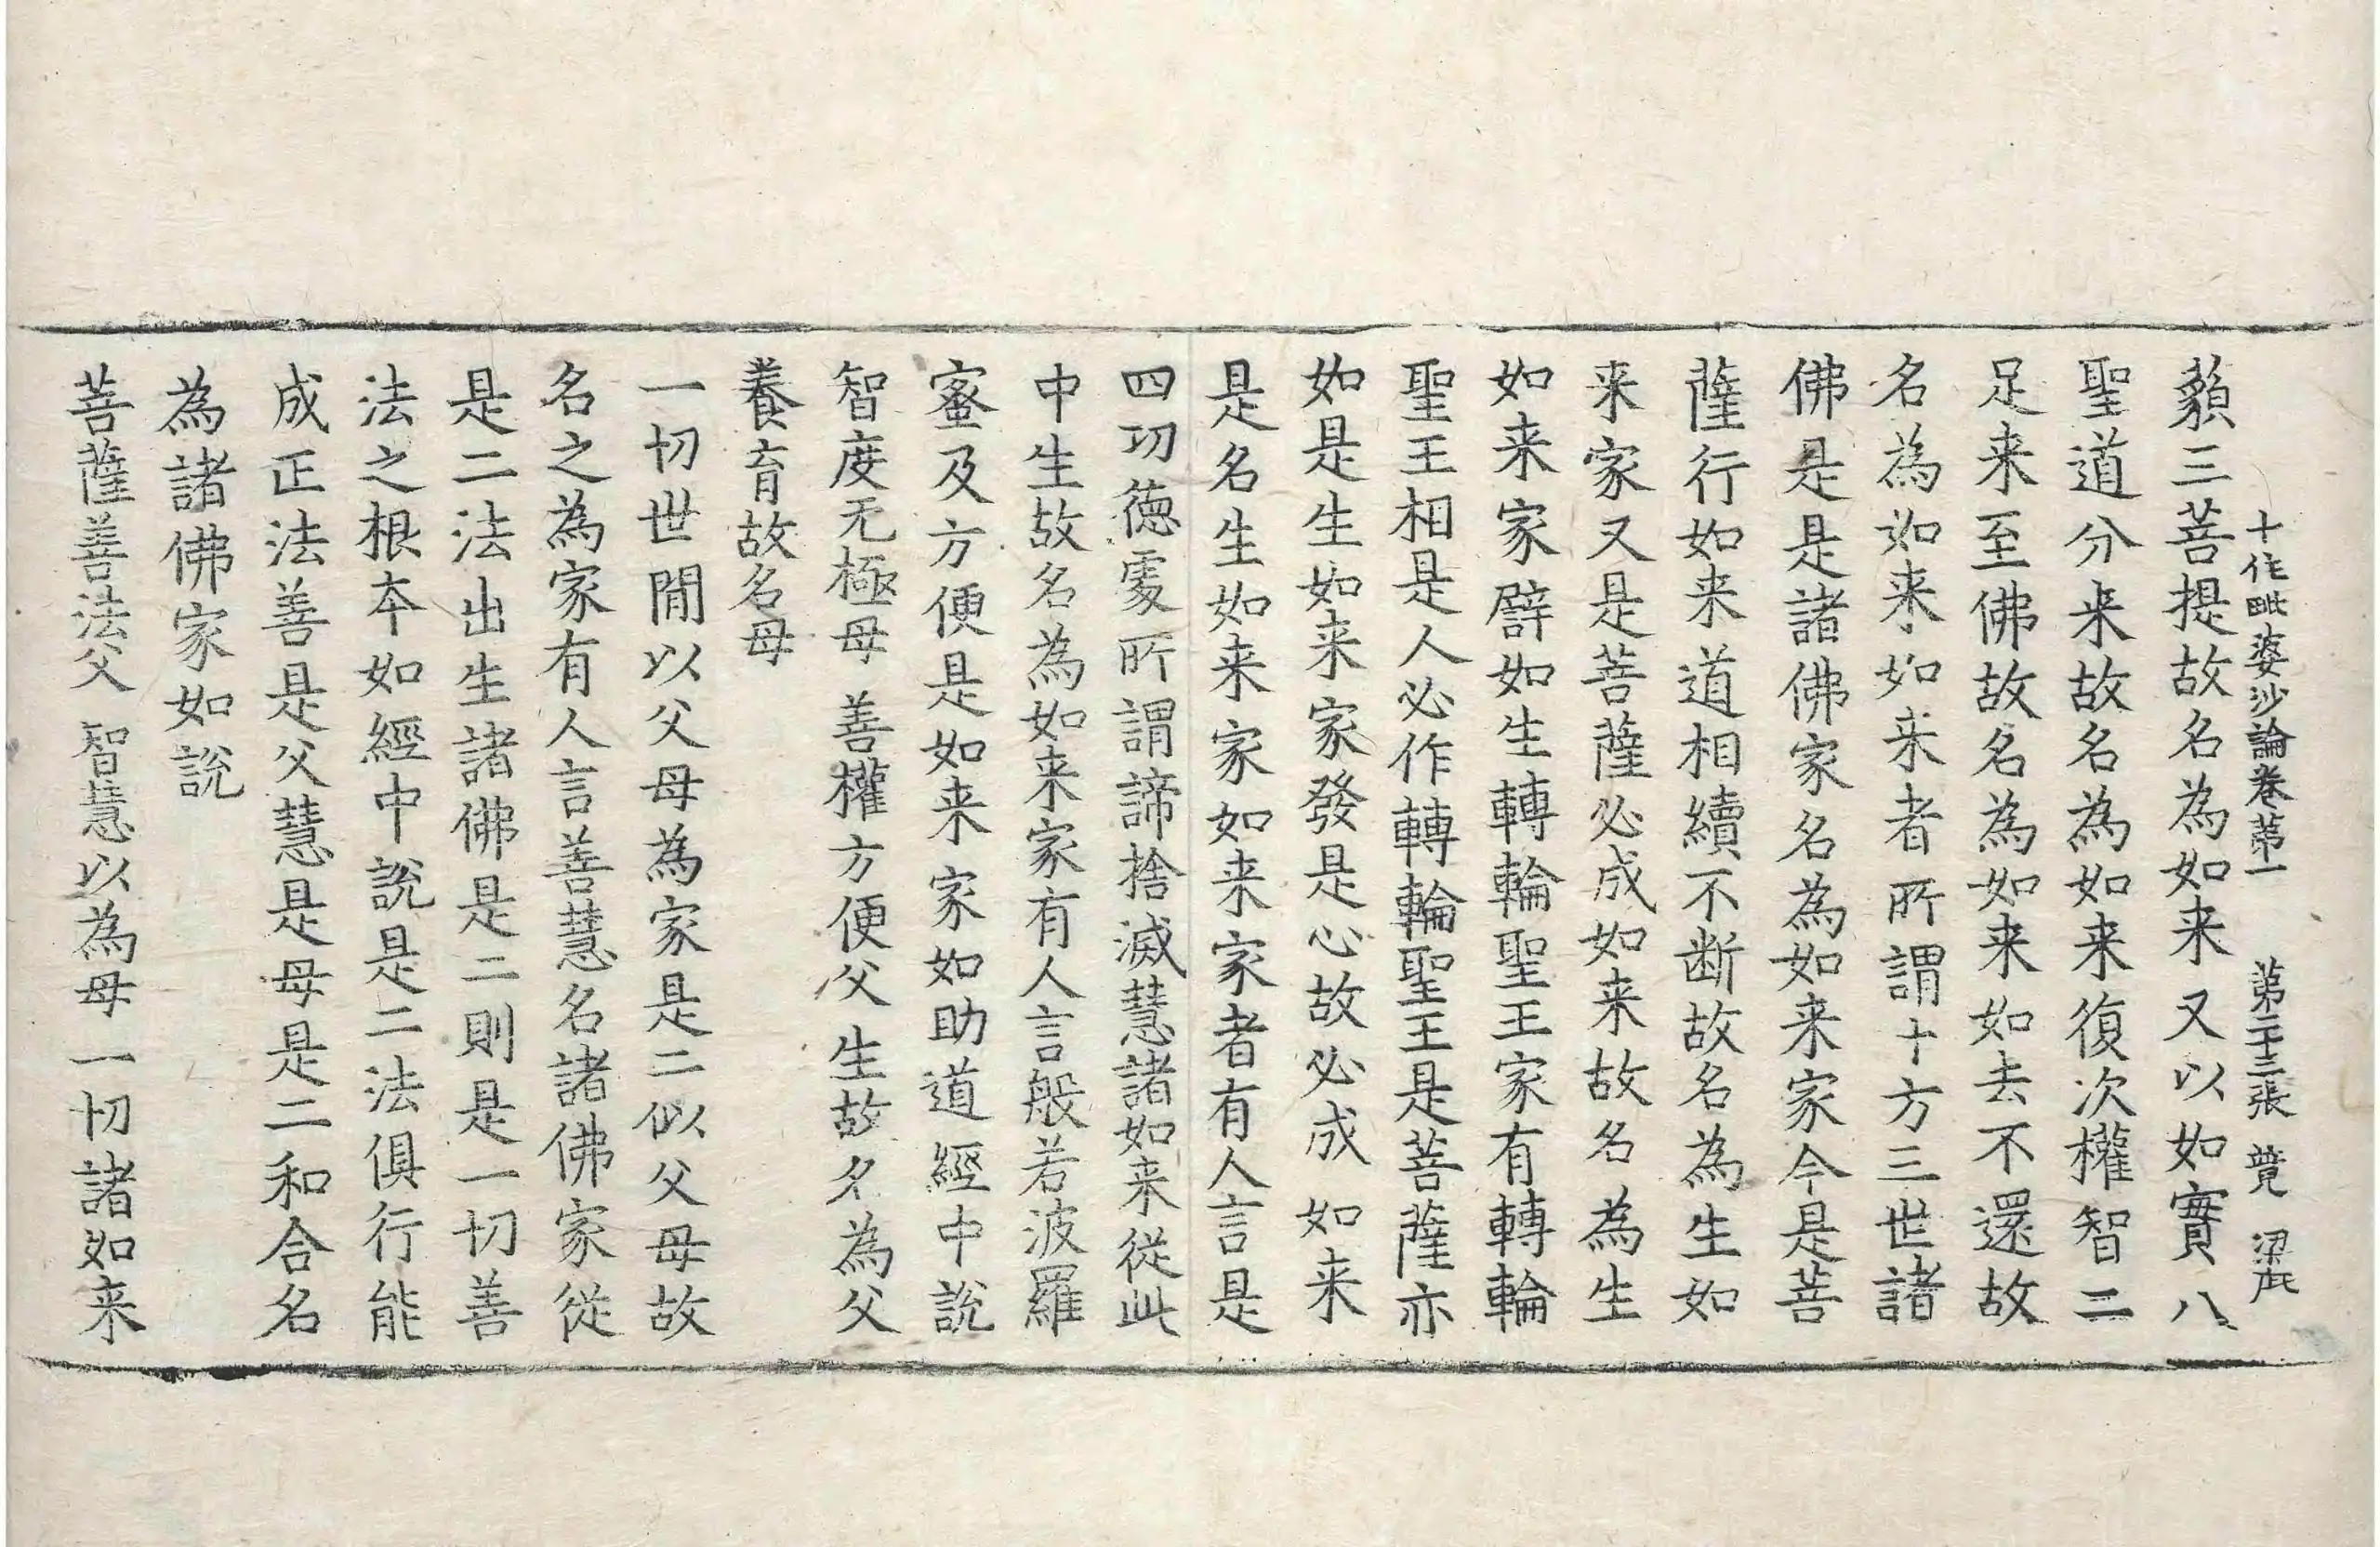 十住毗婆沙論卷第一　第二十三張　覽　梁庇
藐三菩提故名為如来又以如實八
聖道分来故名為如来復次權智二
足来至佛故名為如来如去不還故
名為如来如来者所謂十方三世諸
佛是是諸佛家名為如来家今是菩
薩行如来道相續不断故名為生如
来家又是菩薩必成如来故名為生
如来家辟如生轉輪聖王家有轉輪
聖王相是人必作轉輪聖王是菩薩亦
如是生如来家發是心故必成如来
是名生如来家如来家者有人言是
四功德處所謂諦捨滅慧諸如来從此
中生故名為如来家有人言般若波羅
蜜及方便是如来家如助道經中說
智度无極母　善權方便父　生故名為父
養育故名母
一切世閒以父母為家是二似父母故
名之為家有人言善慧名諸佛家從
是二法出生諸佛是二則是一切善
法之根本如經中說是二法俱行能
成正法善是父慧是母是二和合名
為諸佛家如說
菩薩善法父　智慧以為母　一切諸如来